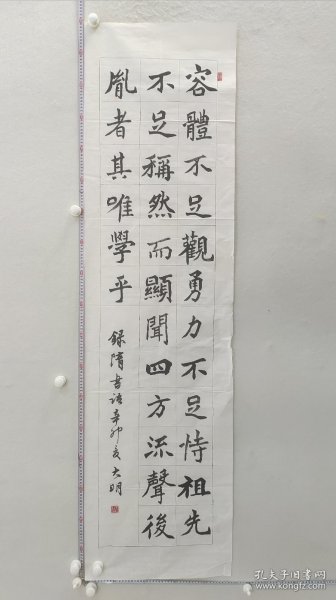 容體不足觀勇力不足恃祖先
不足稱然而顯聞四方流聲後
胤者其唯學乎
録隋書語辛卯夏大明
孔夫子旧书网
www.kongfz.com